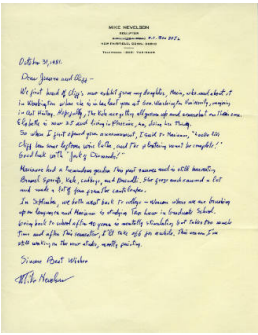 MIKE NEVELSON
SCULPTOR
NEW FAIRFIELD, CONN. 06810
October 31, 1981.
Dear Jimmie and Cliff —
We first heard of Cliff's new exhibit from my daughter, Maria, who read about it
in Washington where she is in her last year at Geo. Washington University, majoring
in Art History. Hopefully, The Kids are getting all grown up and around on their own.
Elsbeth is now 27 and living in Boston, Ma, doing her Thing.
So when I first opened your announcement, I said to Marianne, "looks like
Cliff has some leftover wine bottles, and the plastering won't be complete!"
Good luck with "Joel of Diamonds!"
Marianne had a tremendous garden this past summer and is still harvesting
Brussel Sprouts, Kale, cabbage, and Broccoli. She froze and canned a lot
and made a lot of fine for the
In September, we both went back to college — Western where we are brushing
up on languages and Marianne is studying Two hours in Graduate School.
Going back to school after 40 years is mentally stimulating but takes too much
time and after this semester, I'll take off for a while. This means I'm
still working on the new studio, mostly painting.
Sincere Best Wishes
Mike Nevelson